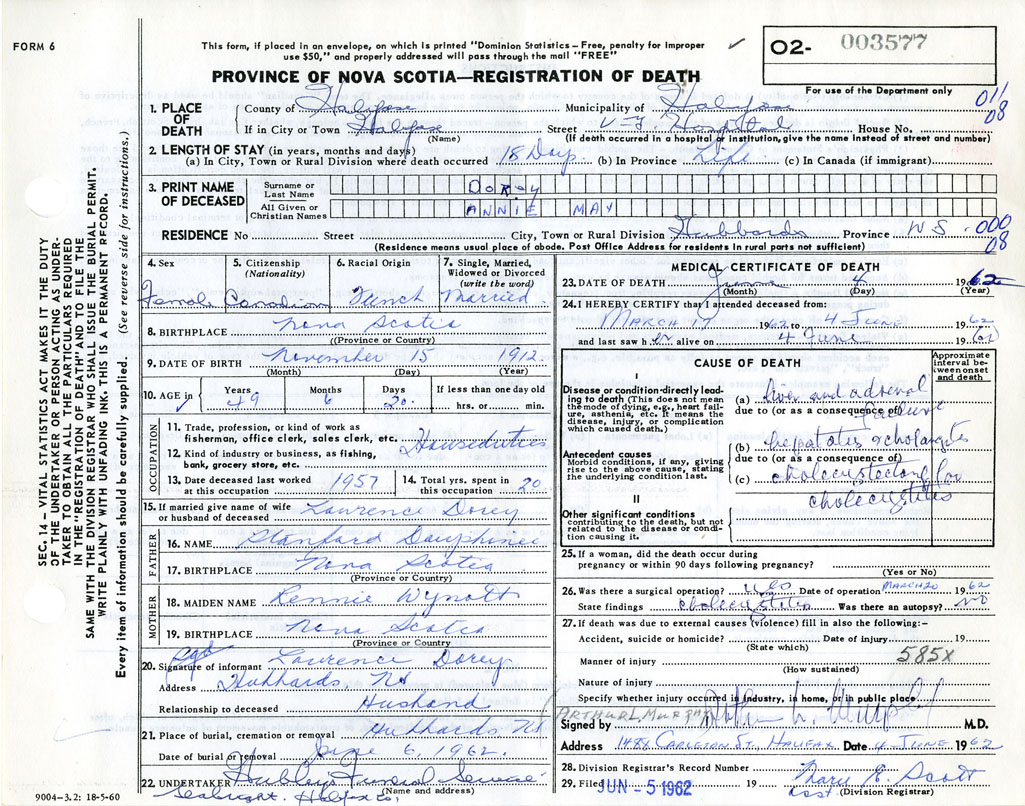 FORM 6
This form, if placed in an envelope, on which is printed "Dominion Statistics – Free, penalty for Improper
use $50," and properly addressed will pass through the mail "FREE"
✓
O2- 003577
For use of the Department only
PROVINCE OF NOVA SCOTIA—REGISTRATION OF DEATH
011
08
1. PLACE OF DEATH
County of Halifax Municipality of Halifax
If in City or Town Halifax Street V-G. Hospital House No.
(Name) (If death occurred in hospital or institution, give the name instead of street and number)
2. LENGTH OF STAY (in years, months and days)
(a) In City, Town or Rural Division where death occurred 18 Days (b) In Province Life (c) In Canada (if immigrant)
3. PRINT NAME OF DECEASED
Surname or Last Name DOREY
All Given or Christian Names ANNIE MAY
RESIDENCE No Street City, Town or Rural Division Hubbards Province NS
000
08
(Residence means usual place of abode. Post Office Address for residents in rural parts not sufficient)
4. Sex
5. Citizenship (Nationality)
6. Racial Origin
7. Single, Married, Widowed or Divorced (write the word)
Female Canadian French Married
8. BIRTHPLACE Nova Scotia
(Province or Country)
9. DATE OF BIRTH November 15 1912
(Month) (Day) (Year)
10. AGE in
Years 49
Months 6
Days 20
If less than one day old
hrs. or min.
OCCUPATION
11. Trade, profession, or kind of work as
fisherman, office clerk, sales clerk, etc. Houseduties
12. Kind of industry or business, as fishing,
bank, grocery store, etc.
13. Date deceased last worked
at this occupation 1957
14. Total yrs. spent in
this occupation 20
15. If married give name of wife
or husband of deceased Lawrence Dorey
FATHER
16. NAME Stanford Dauphinee
17. BIRTHPLACE Nova Scotia
(Province or Country)
MOTHER
18. MAIDEN NAME Rennie Wynott
19. BIRTHPLACE Nova Scotia
(Province or Country)
20. Signature of informant Lawrence Dorey
Address Hubbards, NS
Relationship to deceased Husband
21. Place of burial, cremation or removal Hubbards NS
Date of burial or removal June 6, 1962.
22. UNDERTAKER Hubley Funeral Service
(Name and address)
Seabright. Halifax Co.
9004-3.2: 18-5-60
SEC. 14 – VITAL STATISTICS ACT MAKES IT THE DUTY
OF THE UNDERTAKER OR PERSON ACTING AS UNDER-
TAKER TO OBTAIN ALL THE PARTICULARS REQUIRED
IN THE "REGISTRATION OF DEATH" AND TO FILE THE
SAME WITH THE DIVISION REGISTRAR WHO SHALL ISSUE THE BURIAL PERMIT.
WRITE PLAINLY WITH UNFADING INK. THIS IS A PERMANENT RECORD.
Every item of information should be carefully supplied. (See reverse side for instructions.)
MEDICAL CERTIFICATE OF DEATH
23. DATE OF DEATH June 4 1962
(Month) (Day) (Year)
24. I HEREBY CERTIFY that I attended deceased from:
MARCH 17 1962 to 4 June 1962
and last saw her alive on 4 June 1962
CAUSE OF DEATH
Approximate interval between onset and death
I
Disease or condition directly leading to death (This does not mean the mode of dying, e.g., heart failure, asthenia, etc. It means the disease, injury, or complication which caused death.)
(a) liver and adrenal failure
due to (or as a consequence of)
Antecedent causes
Morbid conditions, if any, giving rise to the above cause, stating the underlying condition last.
(b) hepatitis & cholangitis
due to (or as a consequence of)
(c) cholecystectomy for
cholecystitis
II
Other significant conditions
contributing to the death, but not related to the disease or condition causing it.
25. If a woman, did the death occur during
pregnancy or within 90 days following pregnancy?
(Yes or No)
26. Was there a surgical operation? yes Date of operation MARCH 20 1962
State findings cholecystitis Was there an autopsy? NO
27. If death was due to external causes (violence) fill in also the following:-
Accident, suicide or homicide? Date of injury 19
(State which)
585X
Manner of injury
(How sustained)
Nature of injury
Specify whether injury occurred in industry, in home, or in public place
(ARTHUR L. MURPHY
Signed by Arthur L. Murphy M.D.
Address 1488 CARLETON ST. HALIFAX Date 4 JUNE 1962
28. Division Registrar's Record Number
29. Filed JUN - 5 1962 Mary E. Scott
(Division Registrar)